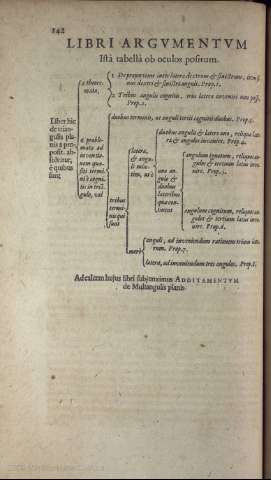 142
LIBRI ARGVMENTVM
Istâ tabellâ ob oculos positum.
Liber hic
de trian-
gulis pla-
nis 8 pro-
posit. ab-
solvitur,
è quibus
sunt
2 theore-
mata,
1. De proportione inter latera dextrum & sinistrum,
& sinistri anguli. Prop. 1.
2. Tribus angulis cognitis, tria latera inveniri non
Prop. 2.
6 proble-
mata ad
inventio-
nem quo-
tis angu-
val
duobus terminis, ut anguli tertii cognitis duobus. Prop. 3.
tribus
termi-
nis qui
sunt
latera,
& angu-
li
ut,
duobus angulis & latere uno, reliqua late-
ra & angulus inveniri. Prop. 4.
uno an-
gulo &
duobus
lateribus
qua con-
tineat
angulum ignotum, reliquos an-
gulos & tertium latus inve-
nire. Prop. 5.
angulum cognitum, reliquos an-
gulos & tertium latus inve-
nire. Prop. 6.
meri
anguli, ad inveniendam rationem trium late-
rum. Prop. 7.
latera, ad inveniendum tres angulos. Prop. 8.
Ad calcem hujus libri subjunximus ADDITAMENTVM
de Multangulis planis.